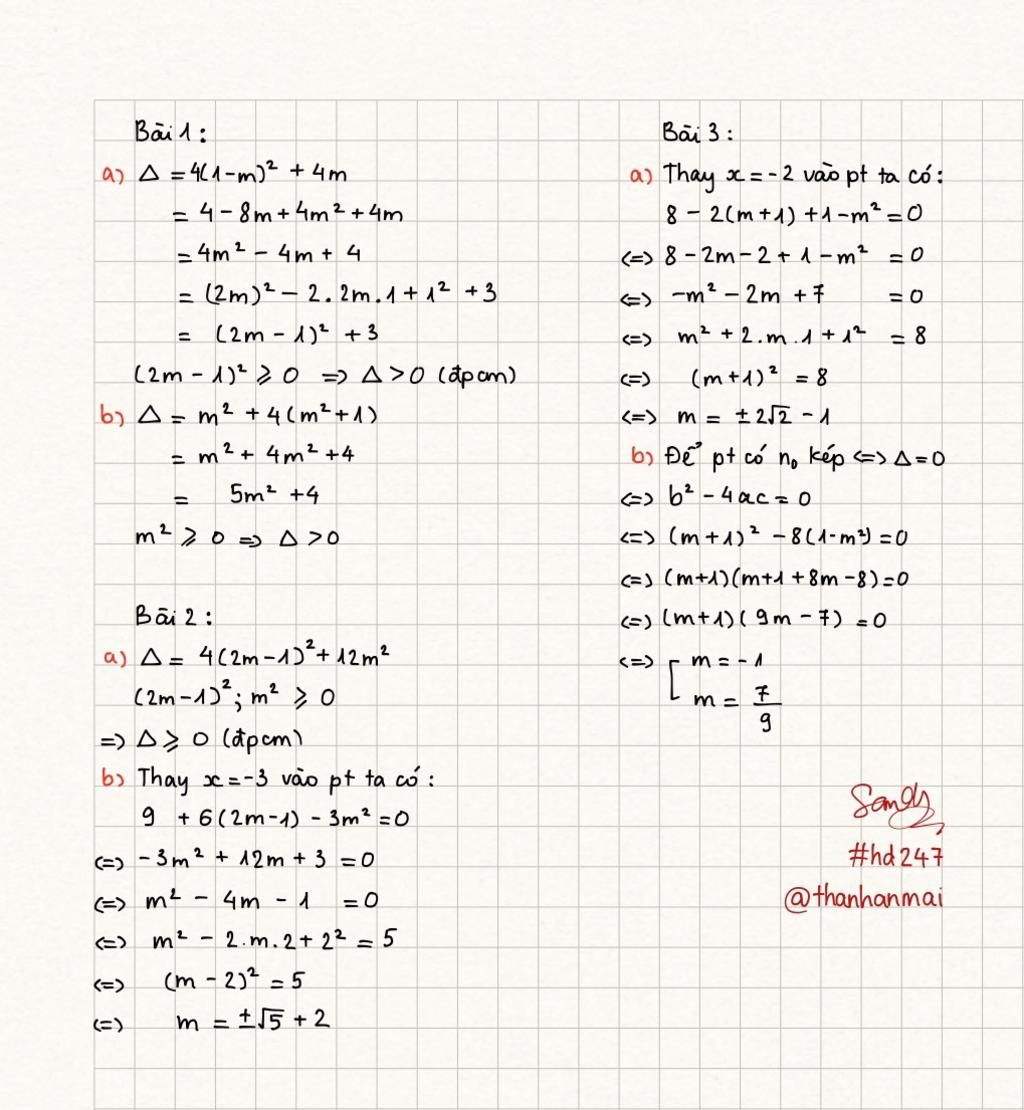 Bài 1:
a) Δ = 4(1-m)² + 4m
= 4 - 8m + 4m² + 4m
= 4m² - 4m + 4
= (2m)² - 2.2m.1 + 1² + 3
= (2m - 1)² + 3
(2m - 1)² ⩾ 0 => Δ > 0 (đpcm)
b) Δ = m² + 4(m²+1)
= m² + 4m² + 4
= 5m² + 4
m² ⩾ 0 => Δ > 0
Bài 2:
a) Δ = 4(2m-1)² + 12m²
(2m-1)²; m² ⩾ 0
=> Δ ⩾ 0 (đpcm)
b) Thay x = -3 vào pt ta có:
9 + 6(2m-1) - 3m² = 0
<=> -3m² + 12m + 3 = 0
<=> m² - 4m - 1 = 0
<=> m² - 2.m.2 + 2² = 5
<=> (m - 2)² = 5
<=> m = ±√5 + 2
Bài 3:
a) Thay x = -2 vào pt ta có:
8 - 2(m+1) + 1 - m² = 0
<=> 8 - 2m - 2 + 1 - m² = 0
<=> -m² - 2m + 7 = 0
<=> m² + 2.m.1 + 1² = 8
<=> (m+1)² = 8
<=> m = ±2√2 - 1
b) Để pt có n₀ kép <=> Δ = 0
<=> b² - 4ac = 0
<=> (m+1)² - 8(1-m²) = 0
<=> (m+1)(m+1+8m-8) = 0
<=> (m+1)(9m-7) = 0
<=> [ m = -1
m = 7/9
Sandy
#hd247
@thanhanmai